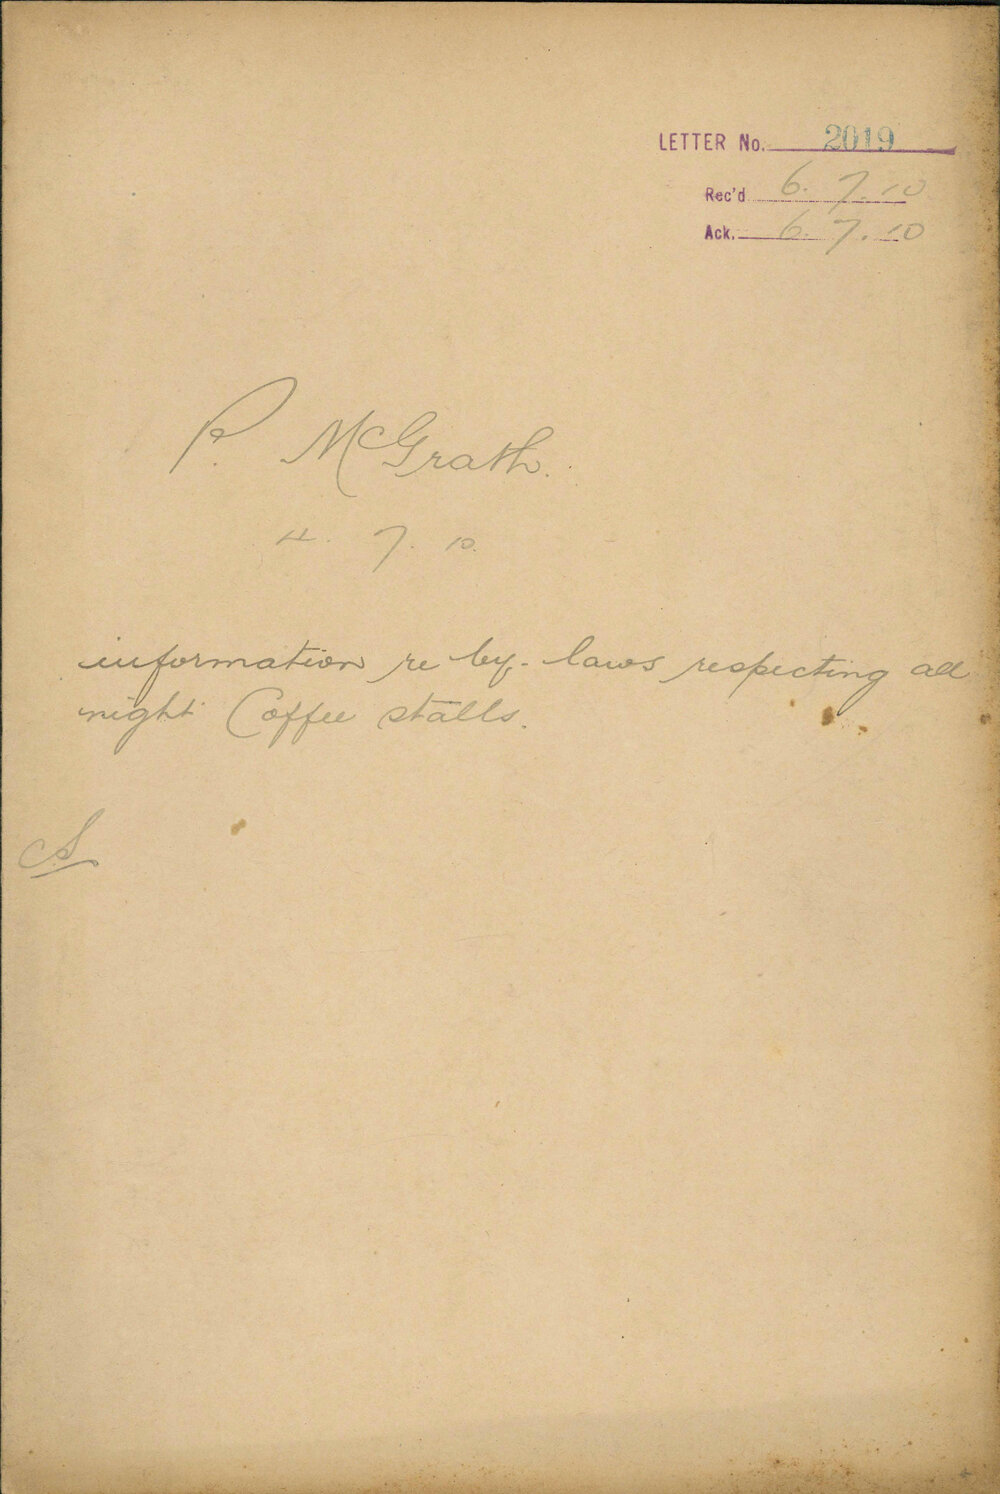 LETTER No. 2019
Rec'd 6. 7. 10
Ack. 6. 7. 10
P. McGrath.
4. 7. 10.
information re by-laws respecting all
night Coffee stalls.